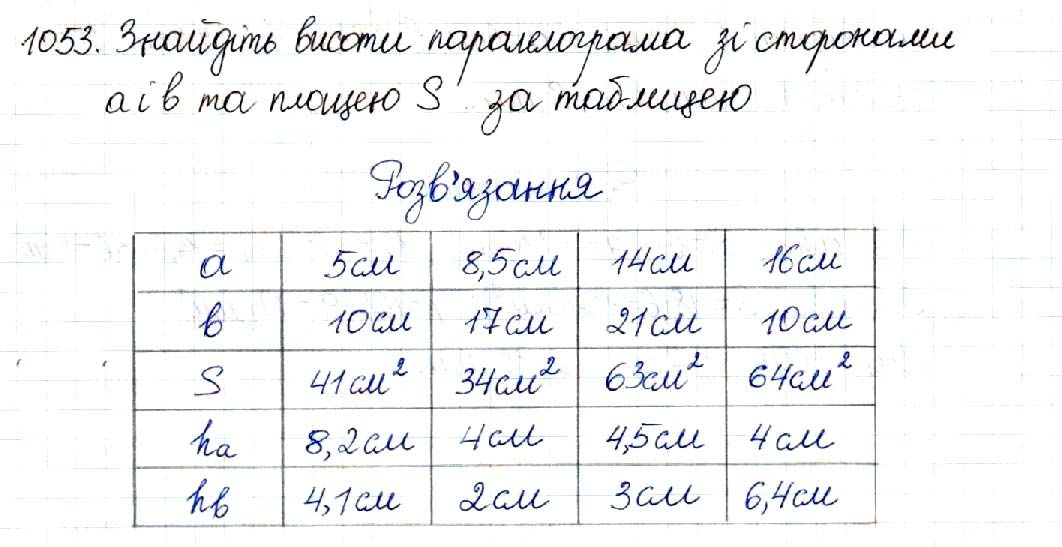 1053. Знайдіть висоти паралелограма зі сторонами
а і в та площею S за таблицею
Розв'язання
а 5см 8,5см 14см 16см
в 10см 17см 21см 10см
S 41см² 34см² 63см² 64см²
hа 8,2см 4см 4,5см 4см
hв 4,1см 2см 3см 6,4см